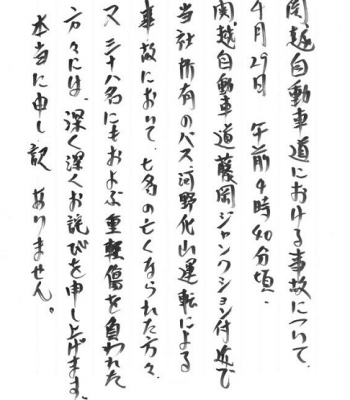 関越自動車道における事故について、
4月29日　午前4時40分頃、
関越自動車道藤岡ジャンクション付近で
当社所有のバス、河野化山運転による
事故において、七名の亡くなられた方々、
又三十八名にもおよぶ重軽傷を負われた
方々には、深く深くお詫びを申し上げます。
本当に申し訳ありません。